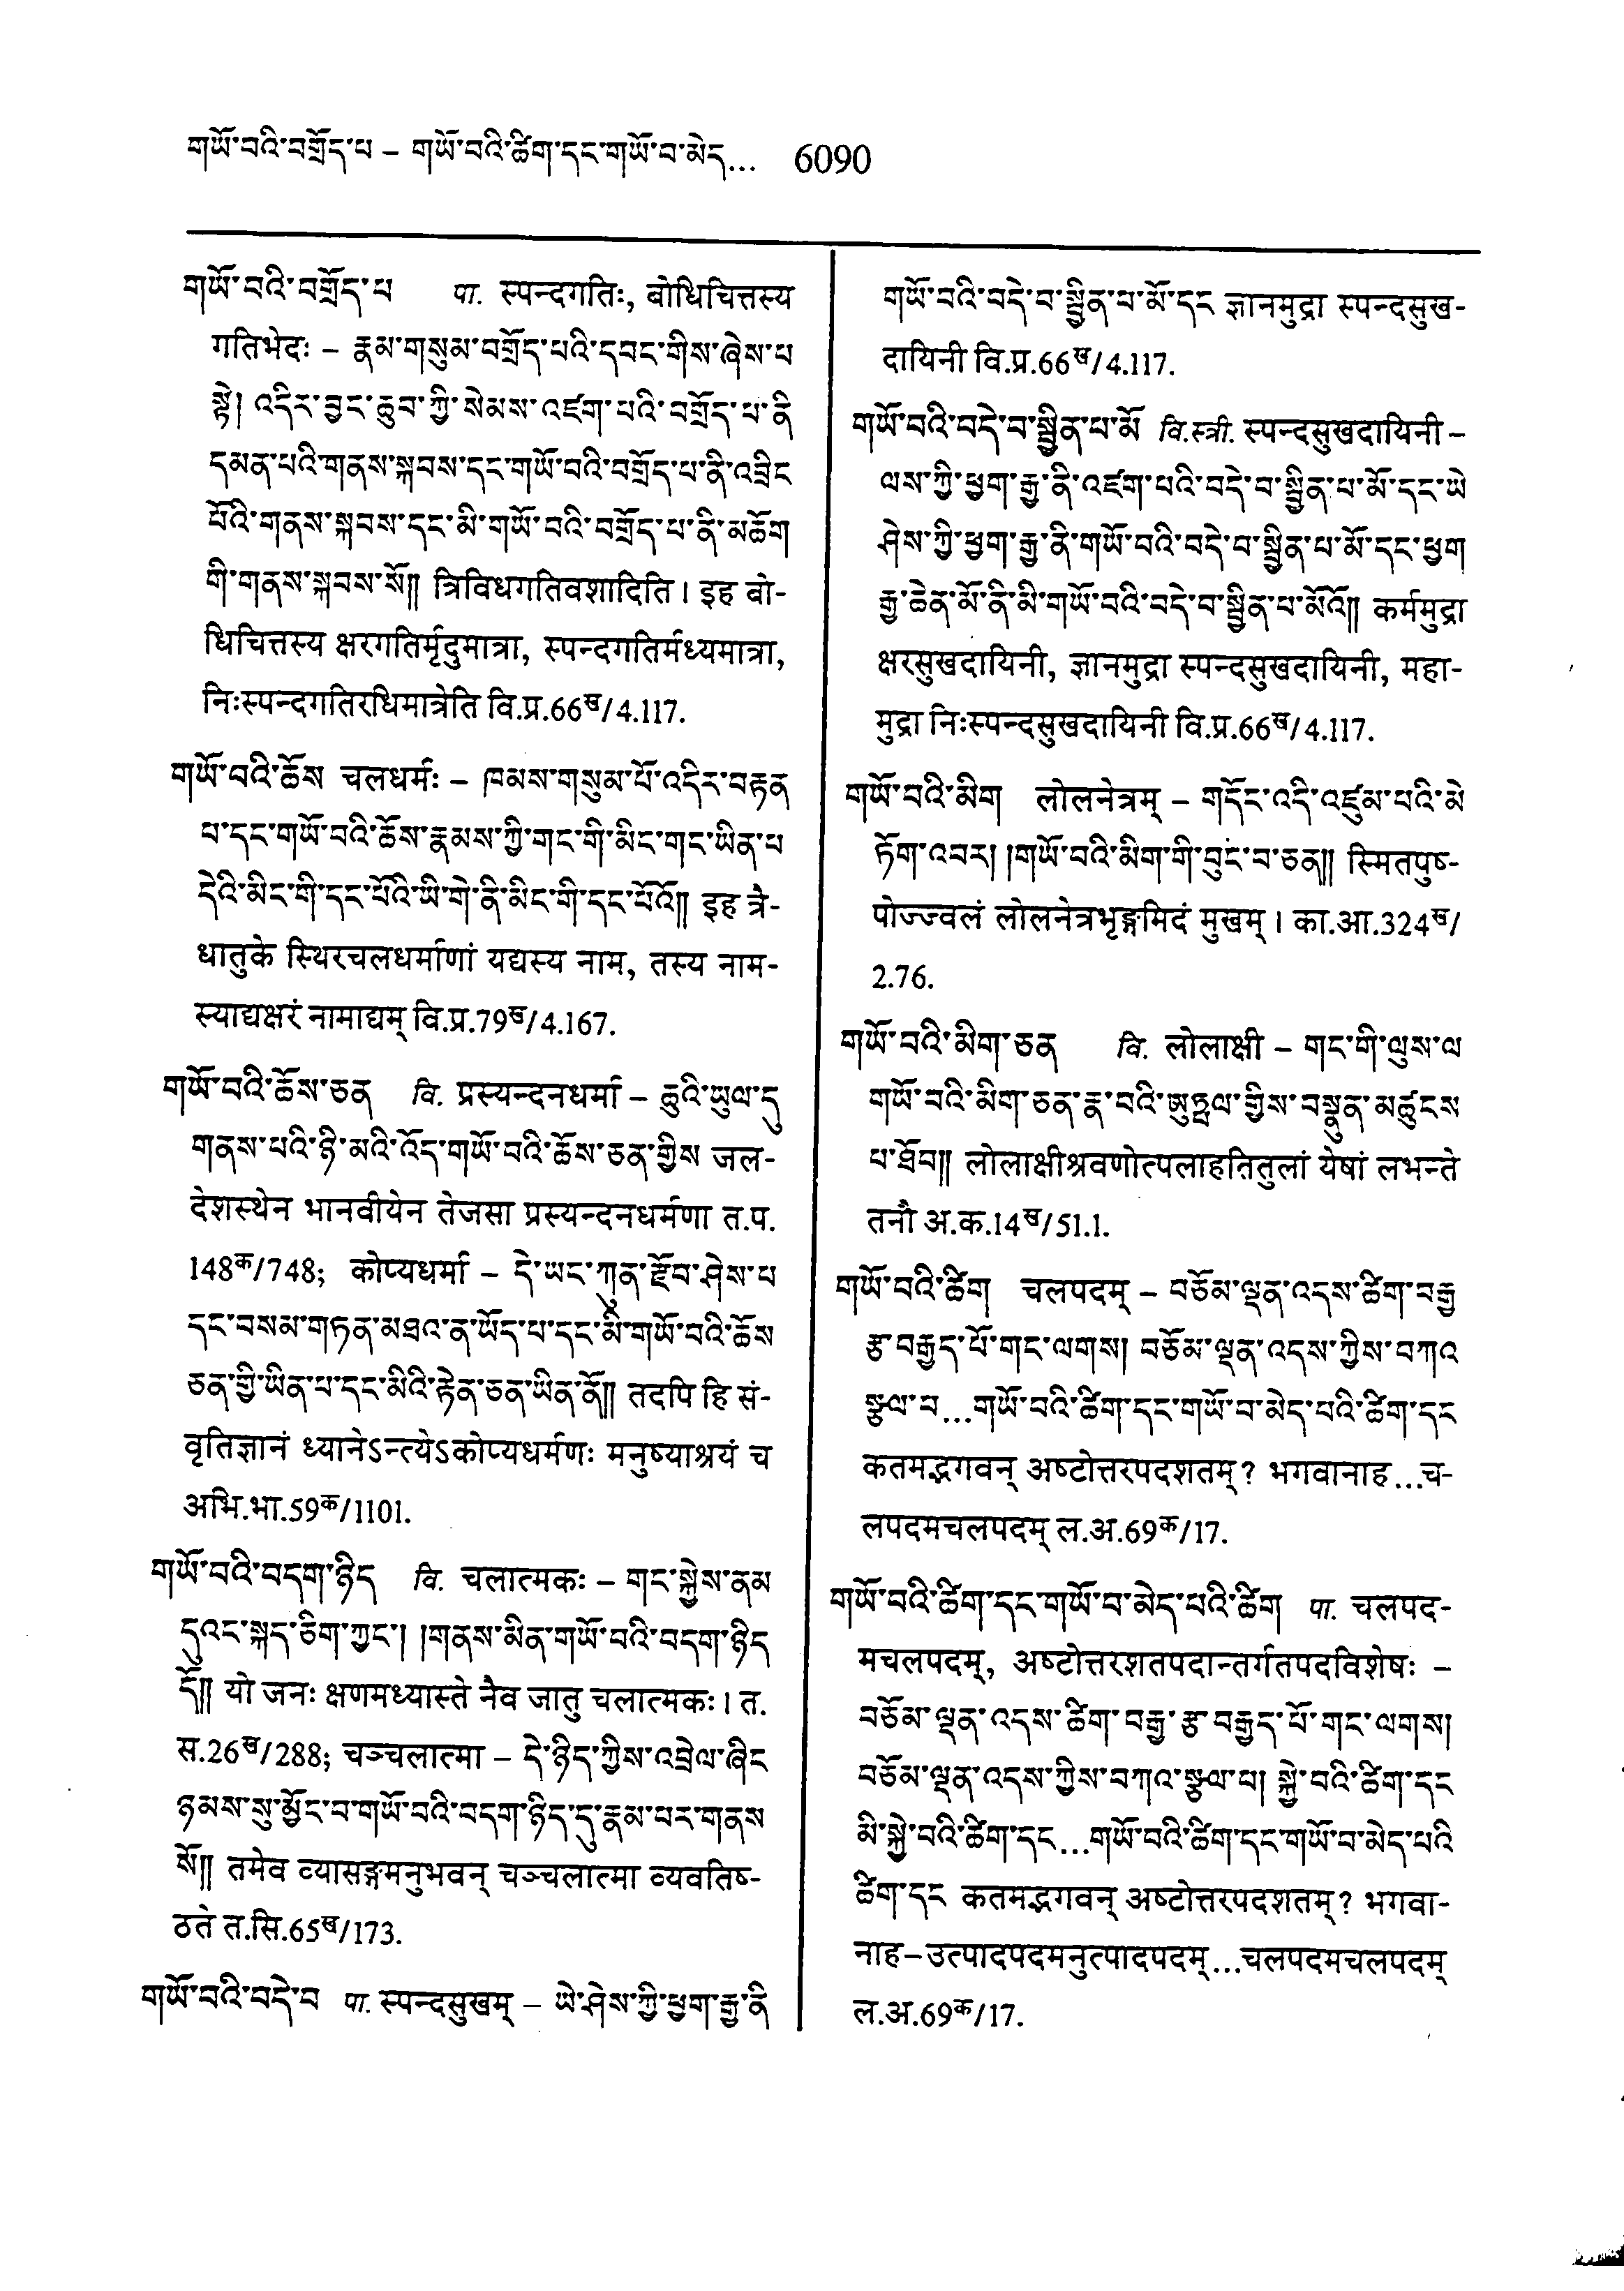 གཡོ་བའི་བགྲོད་པ – གཡོ་བའི་ཚིག་དང་གཡོ་བ་མེད... 6090
གཡོ་བའི་བགྲོད་པ पा. स्पन्दगतिः, बोधिचित्तस्य
गतिभेदः – རྣམ་གསུམ་བགྲོད་པའི་དབང་གིས་ཞེས་པ
སྟེ། འདིར་བྱང་ཆུབ་ཀྱི་སེམས་འཛག་པའི་བགྲོད་པ་ནི
དམན་པའི་གནས་སྐབས་དང་གཡོ་བའི་བགྲོད་པ་ནི་འབྲིང
པོའི་གནས་སྐབས་དང་མི་གཡོ་བའི་བགྲོད་པ་ནི་མཆོག
གི་གནས་སྐབས་སོ༎ त्रिविधगतिवशादिति । इह बो-
धिचित्तस्य क्षरगतिर्मृदुमात्रा, स्पन्दगतिर्मध्यमात्रा,
निःस्पन्दगतिरधिमात्रेति वि.प्र.66ख/4.117.
གཡོ་བའི་ཆོས चलधर्मः – ཁམས་གསུམ་པོ་འདིར་བརྟན
པ་དང་གཡོ་བའི་ཆོས་རྣམས་ཀྱི་གང་གི་མིང་གང་ཡིན་པ
དེའི་མིང་གི་དང་པོའི་ཡི་གེ་ནི་མིང་གི་དང་པོའོ༎ इह त्रै-
धातुके स्थिरचलधर्माणां यद्यस्य नाम, तस्य नाम-
स्याद्यक्षरं नामाद्यम् वि.प्र.79ख/4.167.
གཡོ་བའི་ཆོས་ཅན वि. प्रस्यन्दनधर्मा – ཆུའི་ཡུལ་དུ
གནས་པའི་ཉི་མའི་འོད་གཡོ་བའི་ཆོས་ཅན་གྱིས जल-
देशस्थेन भानवीयेन तेजसा प्रस्यन्दनधर्मणा त.प.
148क/748; कोप्यधर्मा – དེ་ཡང་ཀུན་རྫོབ་ཤེས་པ
དང་བསམ་གཏན་མཐའ་ན་ཡོད་པ་དང་མི་གཡོ་བའི་ཆོས
ཅན་གྱི་ཡིན་པ་དང་མིའི་རྟེན་ཅན་ཡིན་ནོ༎ तदपि हि सं-
वृतिज्ञानं ध्यानेऽन्त्येऽकोप्यधर्मणः मनुष्याश्रयं च
अभि.भा.59क/1101.
གཡོ་བའི་བདག་ཉིད वि. चलात्मकः – གང་སྐྱེས་ནམ
དུའང་སྐད་ཅིག་ཀྱང་། །གནས་མིན་གཡོ་བའི་བདག་ཉིད
དོ༎ यो जनः क्षणमध्यास्ते नैव जातु चलात्मकः । त.
स.26ख/288; चञ्चलात्मा – དེ་ཉིད་ཀྱིས་འབྲེལ་ཞིང
ཉམས་སུ་མྱོང་བ་གཡོ་བའི་བདག་ཉིད་དུ་རྣམ་པར་གནས
སོ༎ तमेव व्यासङ्गमनुभवन् चञ्चलात्मा व्यवतिष्-
ठते त.सि.65ख/173.
གཡོ་བའི་བདེ་བ पा. स्पन्दसुखम् – ཡེ་ཤེས་ཀྱི་ཕྱག་རྒྱ་ནི
གཡོ་བའི་བདེ་བ་སྦྱིན་པ་མོ་དང ज्ञानमुद्रा स्पन्दसुख-
दायिनी वि.प्र.66ख/4.117.
གཡོ་བའི་བདེ་བ་སྦྱིན་པ་མོ वि.स्त्री. स्पन्दसुखदायिनी –
ལས་ཀྱི་ཕྱག་རྒྱ་ནི་འཛག་པའི་བདེ་བ་སྦྱིན་པ་མོ་དང་ཡེ
ཤེས་ཀྱི་ཕྱག་རྒྱ་ནི་གཡོ་བའི་བདེ་བ་སྦྱིན་པ་མོ་དང་ཕྱག
རྒྱ་ཆེན་མོ་ནི་མི་གཡོ་བའི་བདེ་བ་སྦྱིན་པ་མོའོ༎ कर्ममुद्रा
क्षरसुखदायिनी, ज्ञानमुद्रा स्पन्दसुखदायिनी, महा-
मुद्रा निःस्पन्दसुखदायिनी वि.प्र.66ख/4.117.
གཡོ་བའི་མིག लोलनेत्रम् – གདོང་འདི་འཛུམ་པའི་མེ
ཏོག་འབར། །གཡོ་བའི་མིག་གི་བུང་བ་ཅན༎ स्मितपुष्-
पोज्ज्वलं लोलनेत्रभृङ्गमिदं मुखम् । का.आ.324ख/
2.76.
གཡོ་བའི་མིག་ཅན वि. लोलाक्षी – གང་གི་ལུས་ལ
གཡོ་བའི་མིག་ཅན་རྣ་བའི་ཨུཏྤལ་གྱིས་བསྣུན་མཚུངས
པ་ཐོབ༎ लोलाक्षीश्रवणोत्पलाहतितुलां येषां लभन्ते
तनौ अ.क.14ख/51.1.
གཡོ་བའི་ཚིག चलपदम् – བཅོམ་ལྡན་འདས་ཚིག་བརྒྱ
རྩ་བརྒྱད་པོ་གང་ལགས། བཅོམ་ལྡན་འདས་ཀྱིས་བཀའ
སྩལ་པ...གཡོ་བའི་ཚིག་དང་གཡོ་བ་མེད་པའི་ཚིག་དང
कतमद्भगवन् अष्टोत्तरपदशतम्? भगवानाह...च-
लपदमचलपदम् ल.अ.69क/17.
གཡོ་བའི་ཚིག་དང་གཡོ་བ་མེད་པའི་ཚིག पा. चलपद-
मचलपदम्, अष्टोत्तरशतपदान्तर्गतपदविशेषः –
བཅོམ་ལྡན་འདས་ཚིག་བརྒྱ་རྩ་བརྒྱད་པོ་གང་ལགས།
བཅོམ་ལྡན་འདས་ཀྱིས་བཀའ་སྩལ་པ། སྐྱེ་བའི་ཚིག་དང
མི་སྐྱེ་བའི་ཚིག་དང...གཡོ་བའི་ཚིག་དང་གཡོ་བ་མེད་པའི
ཚིག་དང कतमद्भगवन् अष्टोत्तरपदशतम्? भगवा-
नाह–उत्पादपदमनुत्पादपदम्...चलपदमचलपदम्
ल.अ.69क/17.